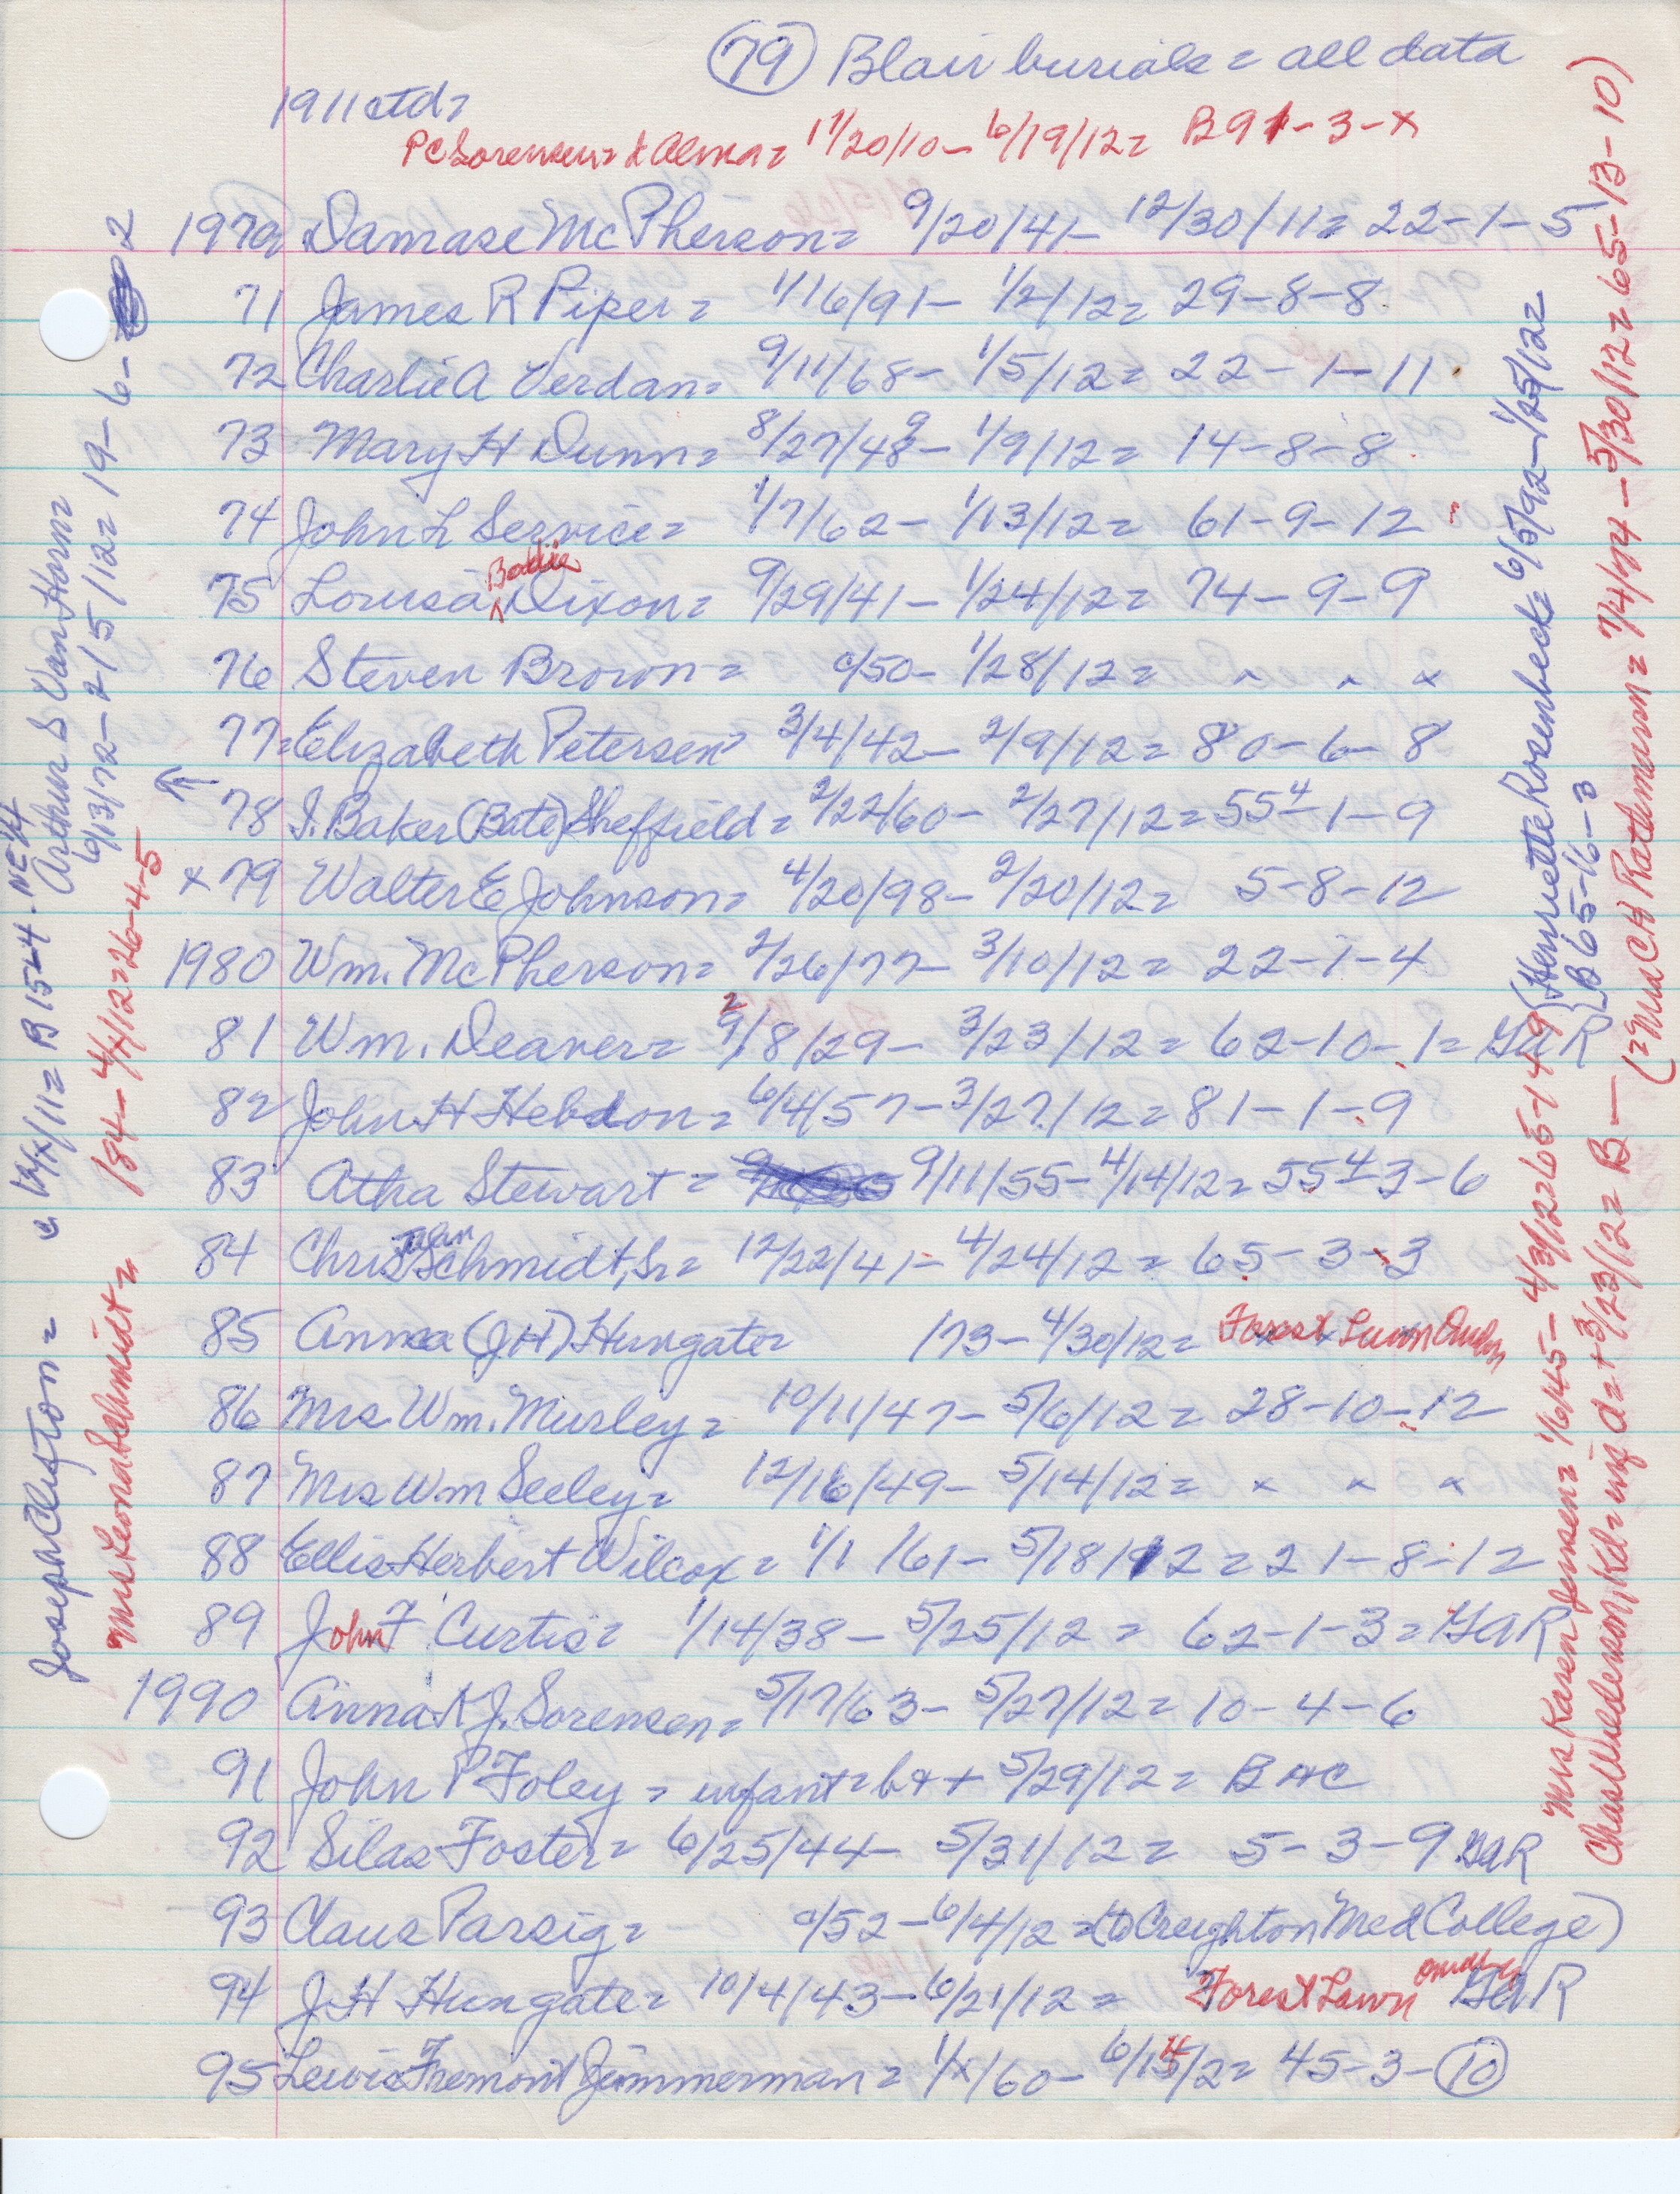 (79) Blair burials = all data
1911 ctd=
PC Sorensen = & Alma = 11/20/10 - 6/19/12 = B 91 - 3 - x
1970 Damase McPherson = 9/20/41 - 12/30/11 = 22-1-5
71 James R Piper = 1/16/91 - 1/2/12 = 29-8-8
72 Charlie A Verdan = 9/11/68 - 1/5/12 = 22-1-11
73 Mary H Dunn = 8/27/48 9 - 1/9/12 = 14-8-8
74 John L Service = 1/7/62 - 1/13/12 = 61-9-12
75 Louisa ^ Boldie Dixon = 9/29/41 - 1/24/12 = 74-9-9
76 Steven Brown = c/50 - 1/28/12 = x x x
77= Elizabeth Petersen = 3/4/42 - 2/9/12 = 80-6-8
78 I. Baker (Bate) Sheffield = 2/22/60 - 2/27/12 = 55 4 - 1-9
x 79 Walter E Johnson = 4/20/98 - 2/20/12 = 5-8-12
1980 Wm. McPherson = 2/26/77 - 3/10/12 = 22-1-4
81 Wm. Deaver = 2 9/8/29 - 3/23/12 = 62-10-1 = GAR
82 John H Hebdon = 6/4/57 - 3/27/12 = 81-1-9
83 Atha Stewart = 9/11/55 - 4/14/12 = 55 4 - 3-6
84 Chris Schmidt, Sr = 12/22/41 - 4/24/12 = 65-3-3
85 Anna (JH) Hungate = 173 - 4/30/12 = Forest Lawn Omaha
86 Mrs. Wm. Murley = 10/11/47 - 5/6/12 = 28-10-12
87 Mrs Wm Seeley = 12/16/49 - 5/14/12 = x x x
88 Ellis Herbert Wilcox = 1/1/61 - 5/18/12 = 21-8-12
89 John F Curtis = 1/14/38 - 5/25/12 = 62-1-3 = GAR
1990 Anna K J. Sorensen = 5/17/63 - 5/27/12 = 10-4-6
91 John P Foley = infant = b & + 5/29/12 = B HC
92 Silas Foster = 6/25/44 - 5/31/12 = 5-3-9 GAR
93 Claus Parsig = c/52 - 6/4/12 = (to Creighton Med College)
94 J H Hungate = 10/4/43 - 6/21/12 = Forest Lawn Omaha GAR
95 Lewis Fremont Zimmerman = 1/x/60 - 6/15 4/2 = 45-3-(10)
Joseph Clifton = c. 12/x/11 = B 15-4. NE 1/4
Arthur S Van Horn
6/13/72 - 2/5/12 = 19-6-2
Mrs Leona Schmidt = 184 - 4/x/12 = 26-4-5
Henriette Rosenbeck = 6/5/92 - 1/25/12 =
B 65-16-3
Mrs Karen Jensen = 1/6/45 - 4/3/12 = 65-14-9
Chas Miederson Kd = inf d = + 3/23/12 = B — (= Mrs CH Rathmann = 7/4/74 - 5/30/12 = 65-13-10)